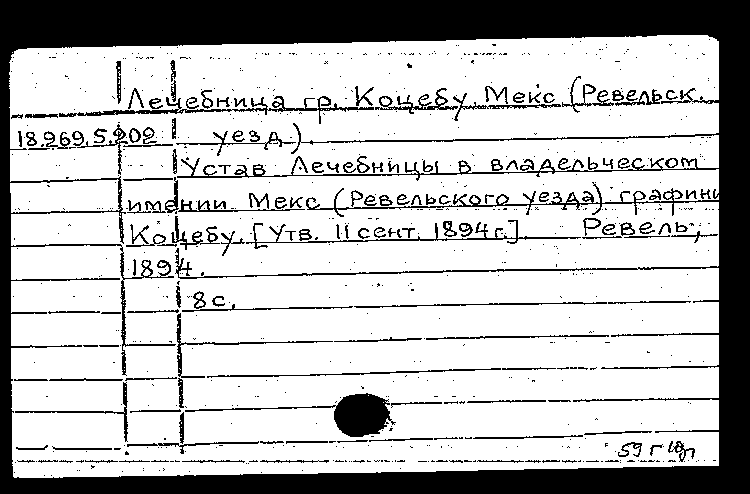 Лечебница гр. Коцебу Мекс (Ревельск.
18.269.5.202 уезд).
Устав Лечебницы в владельческом
имении Мекс (Ревельского уезда) графини
Коцебу. [Утв. 11 сент. 1894 г.]. Ревель,
1894.
8 с.
59 г